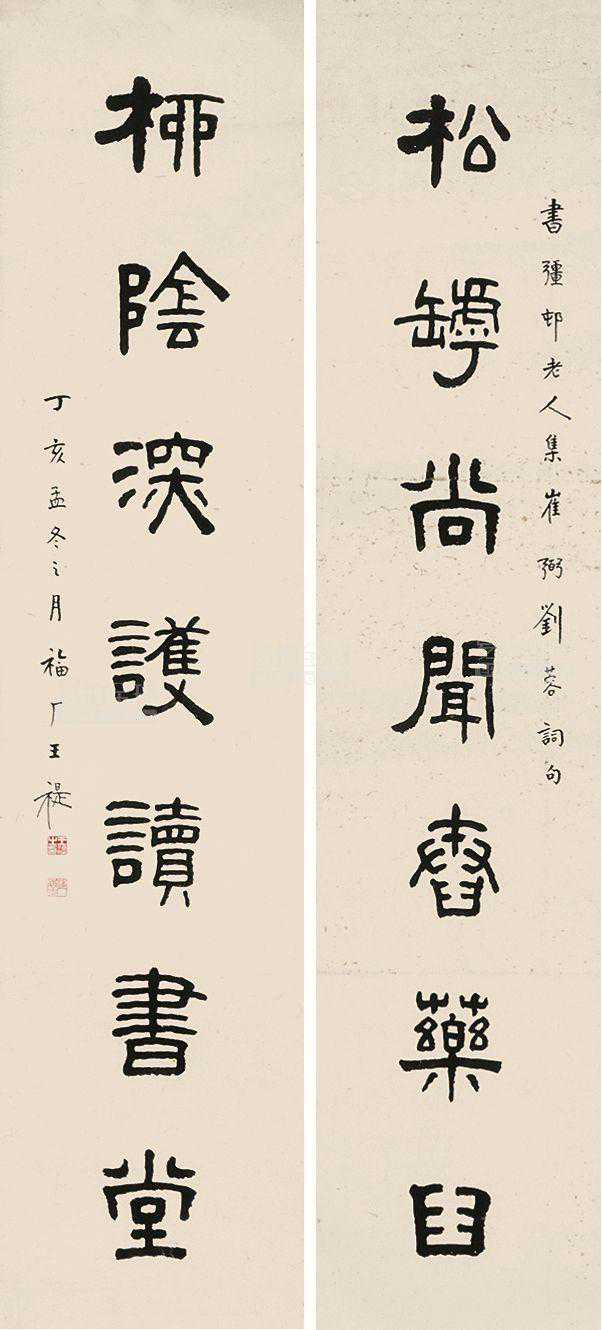 書彊邨老人集崔弼劉蓉詞句
松罅尚聞舂藥臼
柳陰深護讀書堂
丁亥孟冬之月福厂王禔